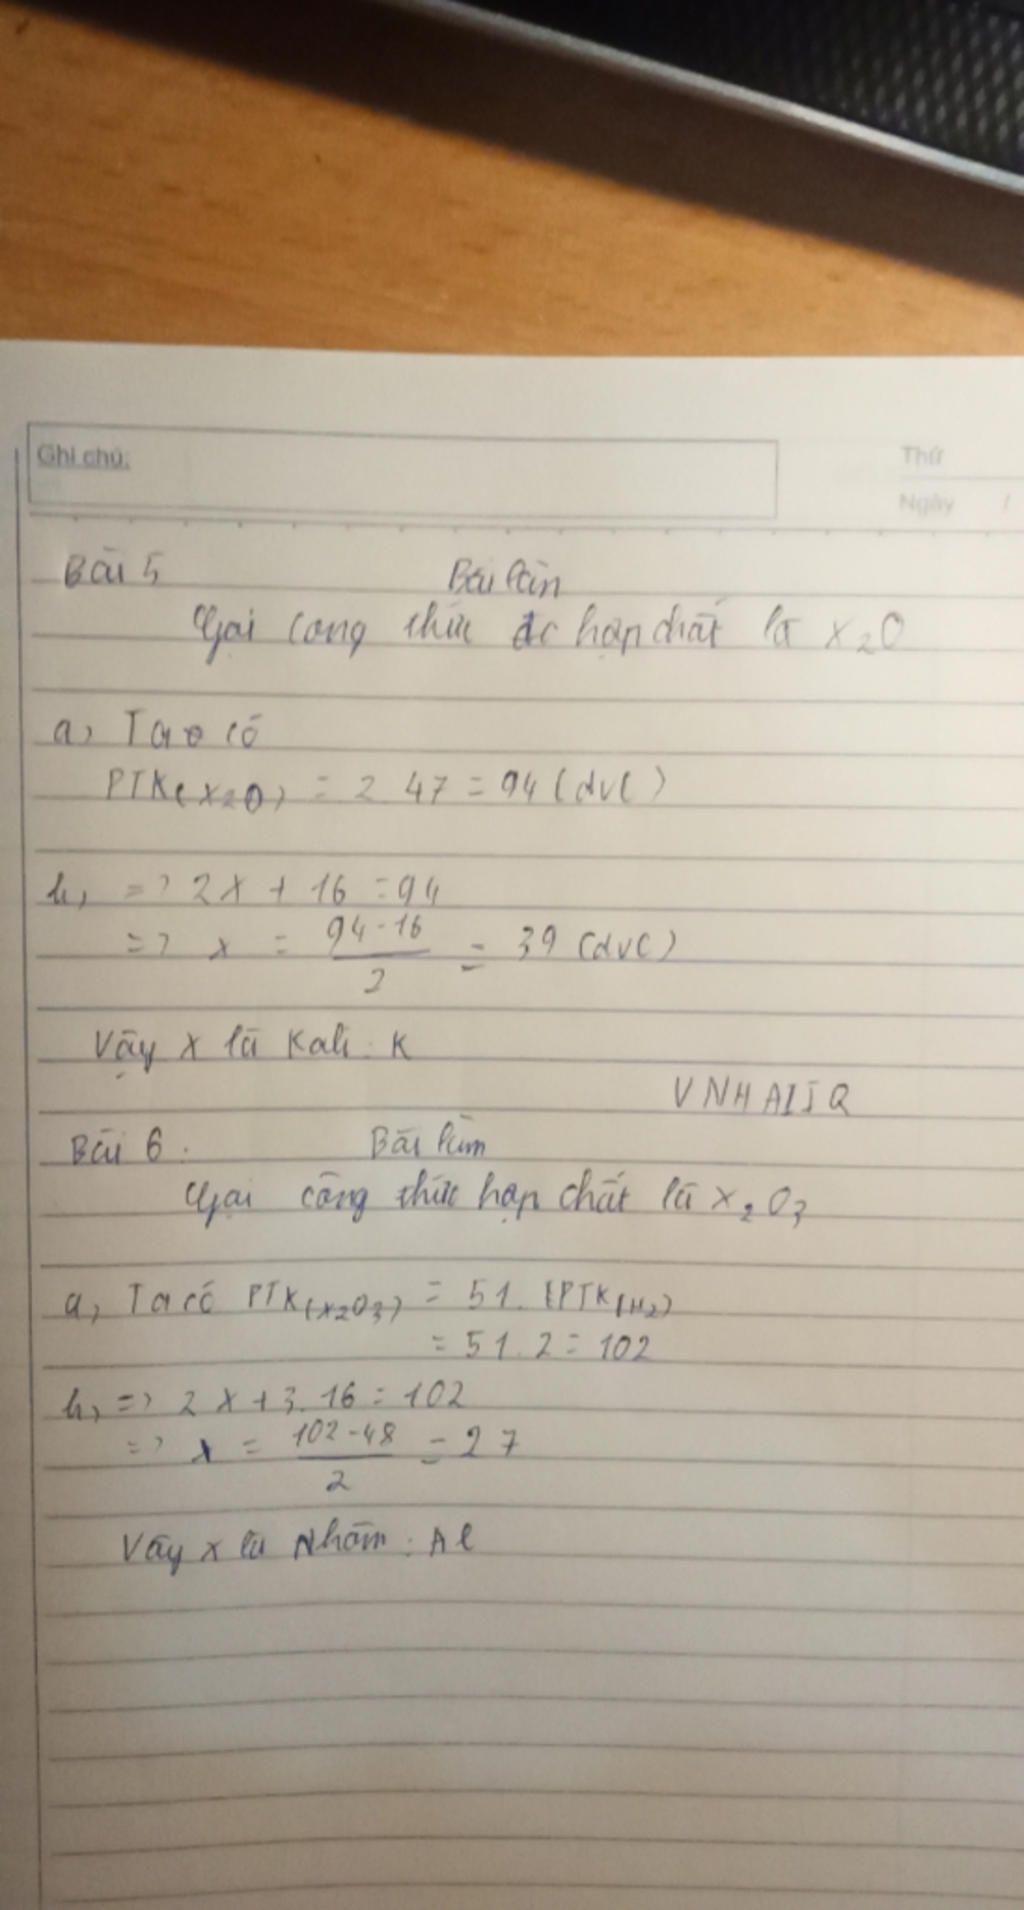 Ghi chú:
Thứ
Ngày /
Bài 5 Bài làm
Gọi công thức hợp chất là X₂O
a, Ta có
PTK(X₂O) = 2 47 = 94 (đvC)
b, => 2X + 16 = 94
=> X = (94 - 16)/2 = 39 (đvC)
Vậy X là Kali : K
VNHAIJQ
Bài 6. Bài làm
Gọi công thức hợp chất là X₂O₃
a, Ta có PTK(X₂O₃) = 51. PTK(H₂)
= 51.2 = 102
b, => 2X + 3.16 = 102
=> X = (102 - 48)/2 = 27
Vậy X là Nhôm : Al